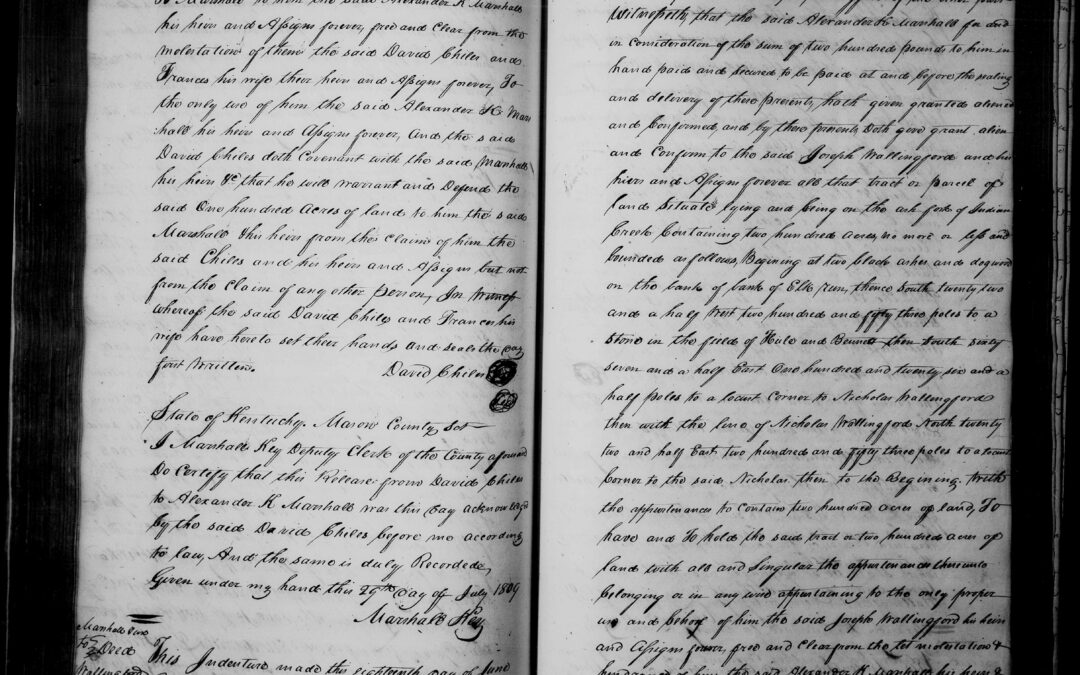 K Marshall to him the said Alexander K Marshall
his heirs and Assigns forever, free and Clear from the
molestation of them the said David Chiles and
Frances his wife their heirs and Assigns forever, To
the only use of him the said Alexander K Mars
hall his heirs and Assigns forever, And the said
David Chiles doth Covenant with the said Marshall
his heirs &c that he will warrant and Defend the
said One hundred Acres of land to him the said
Marshall & his heirs from the Claim of him the
said Chiles and his heirs and Assigns but not
from the Claim of any other person, In Witness
whereof the said David Chiles and Frances his
wife have hereto set their hands and seals the day
first Written.
David Chiles
State of Kentucky, Mason County, Sct
I Marshall Key Deputy Clerk of the County aforesaid
Do Certify that this Release from David Chiles
to Alexander K Marshall was this day acknowledged
by the said David Chiles before me according
to law, And the same is duly Recorded,
Given under my hand this 29th day of July 1809
Marshall Key
Marshall
To Deed
Wallingford
This Indenture made this eighteenth day of June
Witnesseth, that the said Alexander K. Marshall for and
in Consideration of the sum of two hundred pounds to him in
hand paid and secured to be paid at and before the sealing
and delivery of these presents, hath given granted aliened
and Confirmed, and by these presents Doth give grant alien
and Confirm to the said Joseph Wallingford and his
hiers and Assigns forever all that tract or parcel of
land Situate lying and being on the ash fork of Indian
Creek Containing two hundred acres, no more or less and
bounded as follows, Begining at two black ashes and dogwood
on the bank of bank of Elk run, thence South twenty two
and a half West two hundred and fifty three poles to a
Stone in the field of and Bennett then South sixty
seven and a half East One hundred and twenty six and a
half poles to a locust Corner to Nicholas Wallingford
then with the line of Nicholas Wallingford North twenty
two and half East two hundred and fifty three poles to a locust
Corner to the said Nicholas then to the Begining. With
the appurtenances to contain two hundred acres of land, To
have and To hold the said tract or two hundred acres of
land with all and Singular the appurtenances thereunto
belonging or in any wise appurtaining to the only proper
use and behoof of him the said Joseph Wallingford his heirs
and Assigns forever, free and Clear from the let molestation &
hindrance of him the said Alexander K Marshall his heirs &